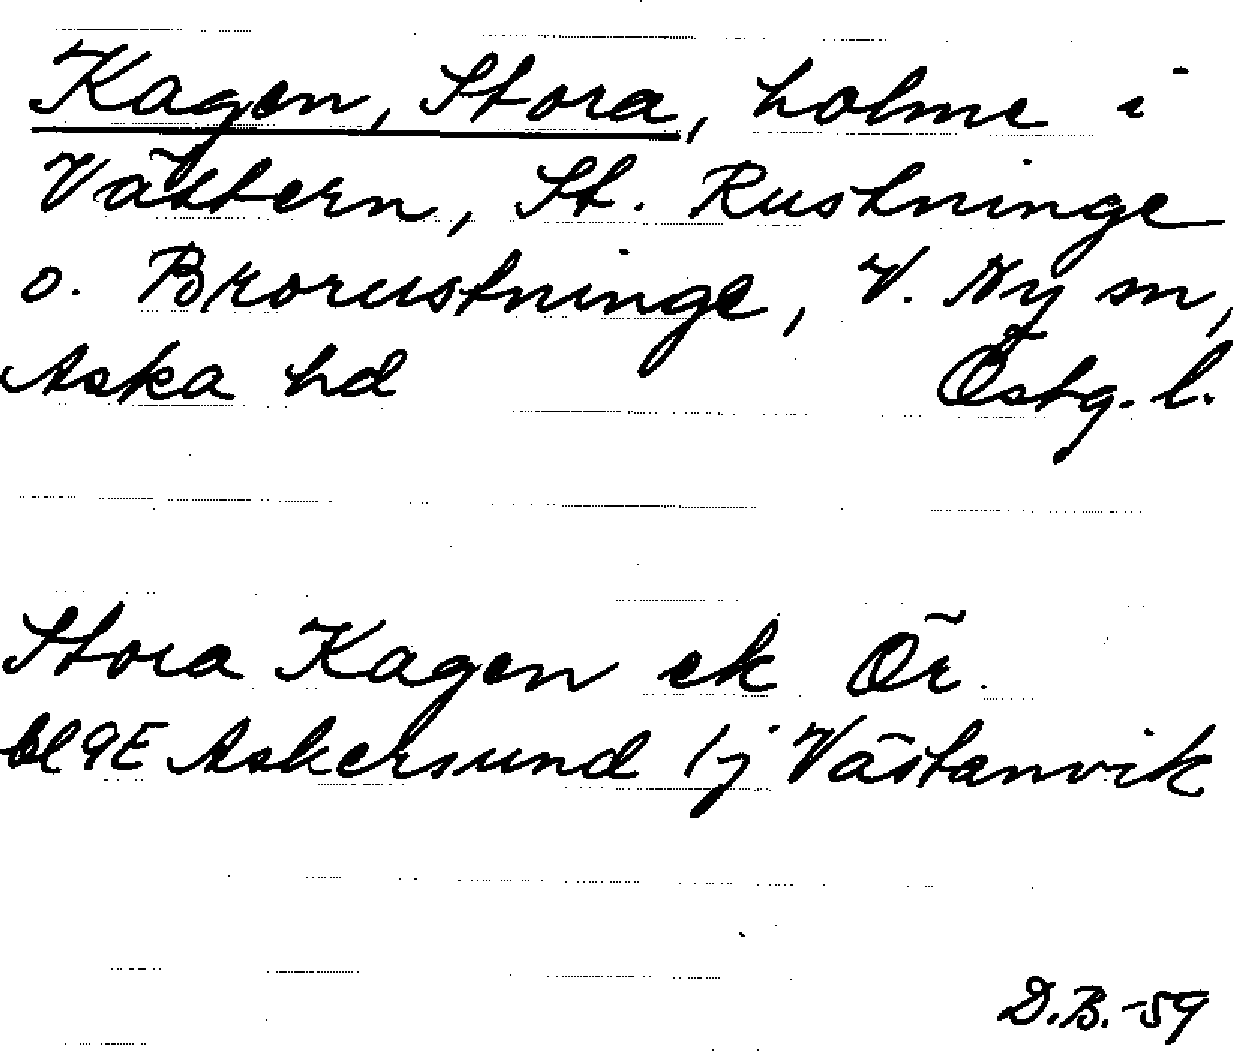 Kagen, Stora, holme i
Vättern, St. Rustninge
o. Brorustninge, V. Ny sn,
Aska hd Östg. l.
Stora Kagen ek Ör.
bl 9E Askersund 1j Västanvik
D.B.-59